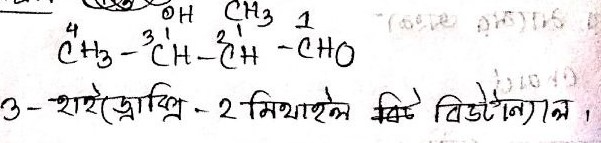 OH CH3
4CH3 - 3CH - 2CH - 1CHO
3-হাইড্রোক্সি-2 মিথাইল বিউটান্যাল।